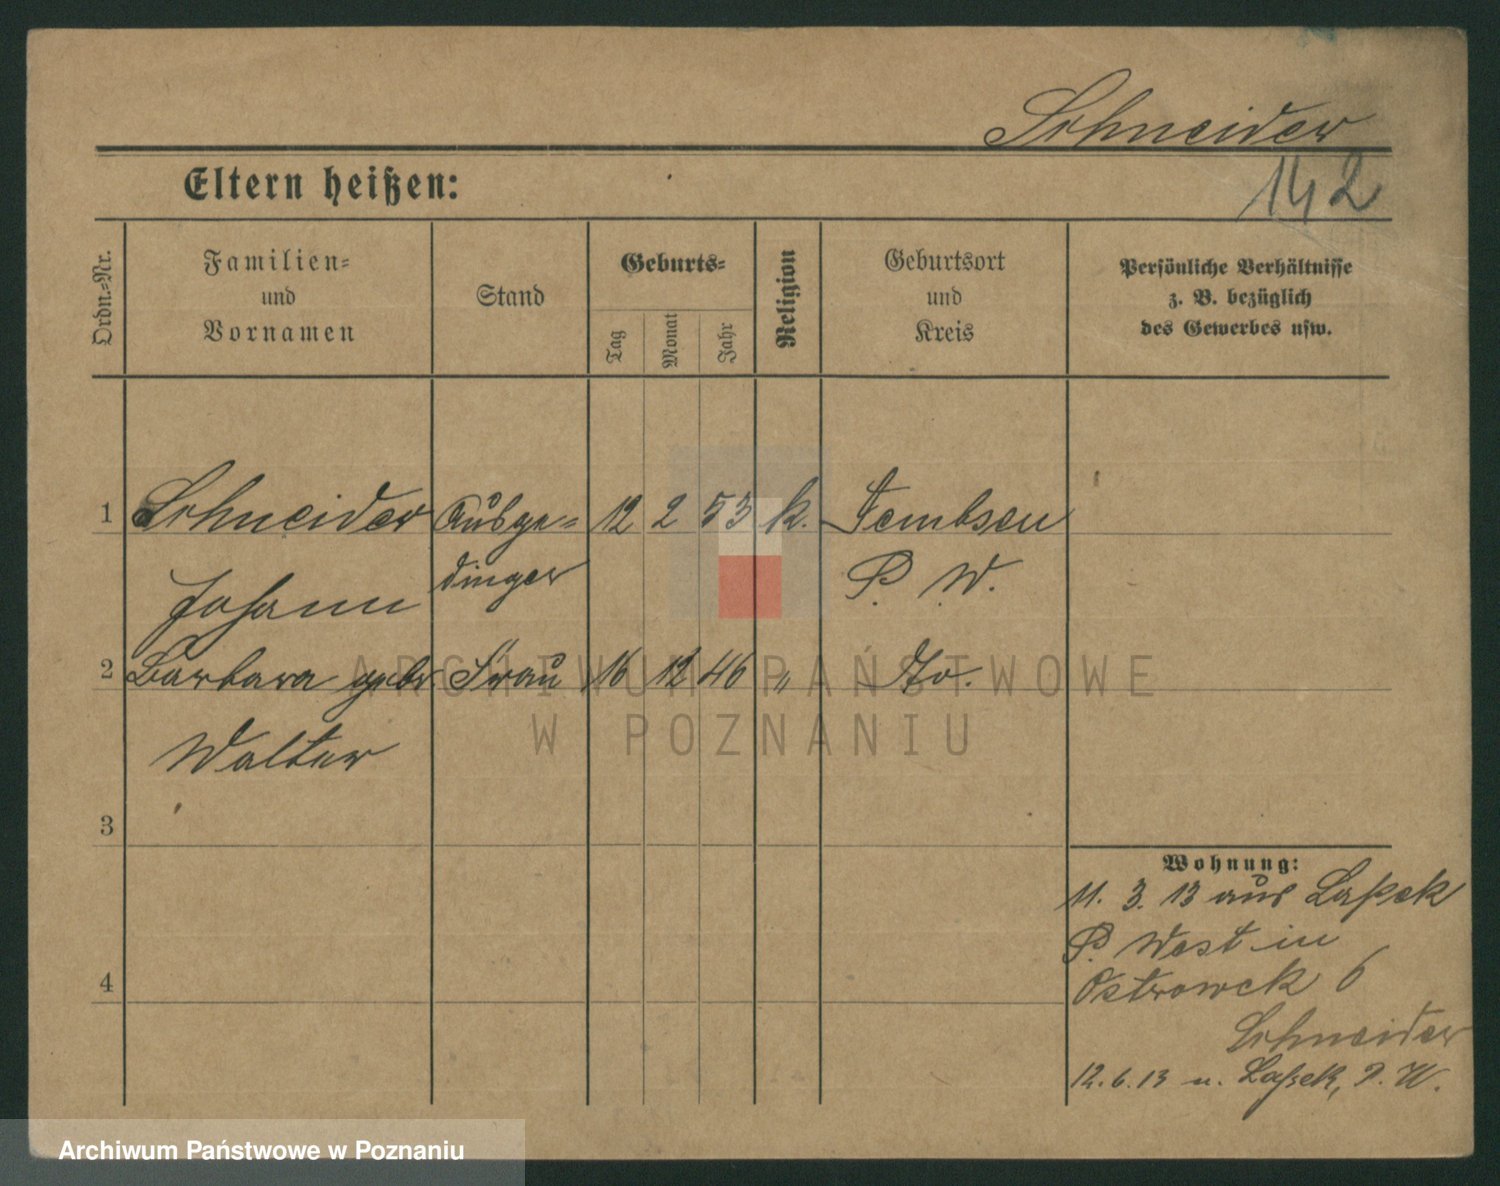 Schneider
142
Eltern heißen:
Ordn.=Nr.
Familien=
und
Vornamen
Stand
Geburts=
Tag
Monat
Jahr
Religion
Geburtsort
und
Kreis
Persönliche Verhältnisse
z. B. bezüglich
des Gewerbes usw.
1 Schneider Ausge= 12 2 53 k. Tembsen
Johann dinger P. W.
2 Barbara geb. Frau 16 12 46 " do.
Walter
3
4
Wohnung:
11. 3. 13 aus Laßek
P. West in
Ostrowek 6
Schneider
12. 6. 13 n. Laßek, P. W.
ARCHIWUM PAŃSTWOWE
W POZNANIU
Archiwum Państwowe w Poznaniu